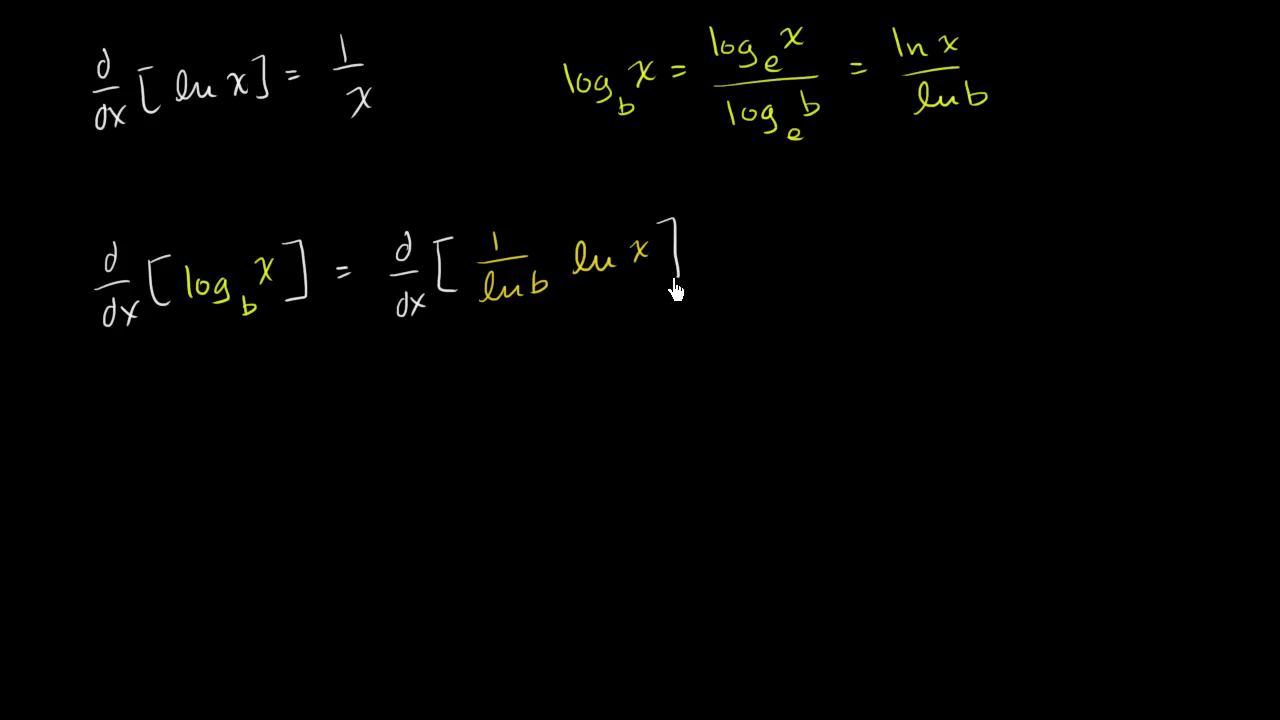 d/dx [ln x] = 1/x    log_b x = log_e x / log_e b = ln x / ln b
d/dx [log_b x] = d/dx [1/ln b ln x]